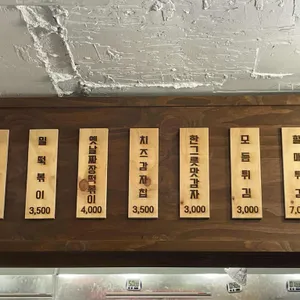 밀떡볶이
3,500
옛날짜장떡볶이
4,000
치즈감자칩
3,500
한그릇맛감자
3,000
모듬튀김
3,000